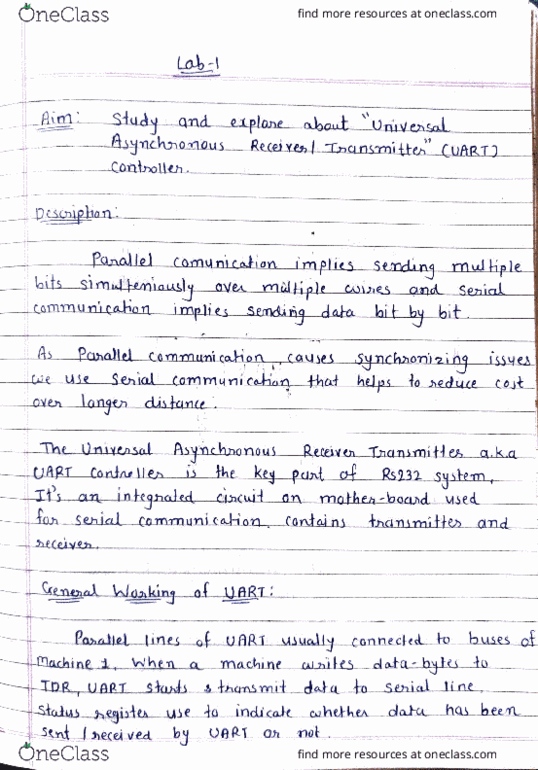 OneClass
find more resources at oneclass.com
Lab-1
Aim: Study and explane about "Universal
Asynchronous Receiver/ Transmitter" (UART)
Controller.
Description:
Parallel comunication implies sending multiple
bits simulteniously over multiple wires and serial
communication implies sending data bit by bit.
As Parallel communication causes synchronizing issues
we use serial communication that helps to reduce cost
over longer distance.
The Universal Asynchronous Receiver Transmitter a.k.a
UART controller is the key part of Rs232 system,
It's an integrated circuit on mother-board used
for serial communication. contains transmitter and
receiver.
General Working of UART:
Parallel lines of UART usually connected to buses of
Machine 1. When a machine writes data-bytes to
TDR, UART starts transmit data to serial line.
Status register use to indicate whether data has been
sent / received by UART or not.
OneClass
find more resources at oneclass.com